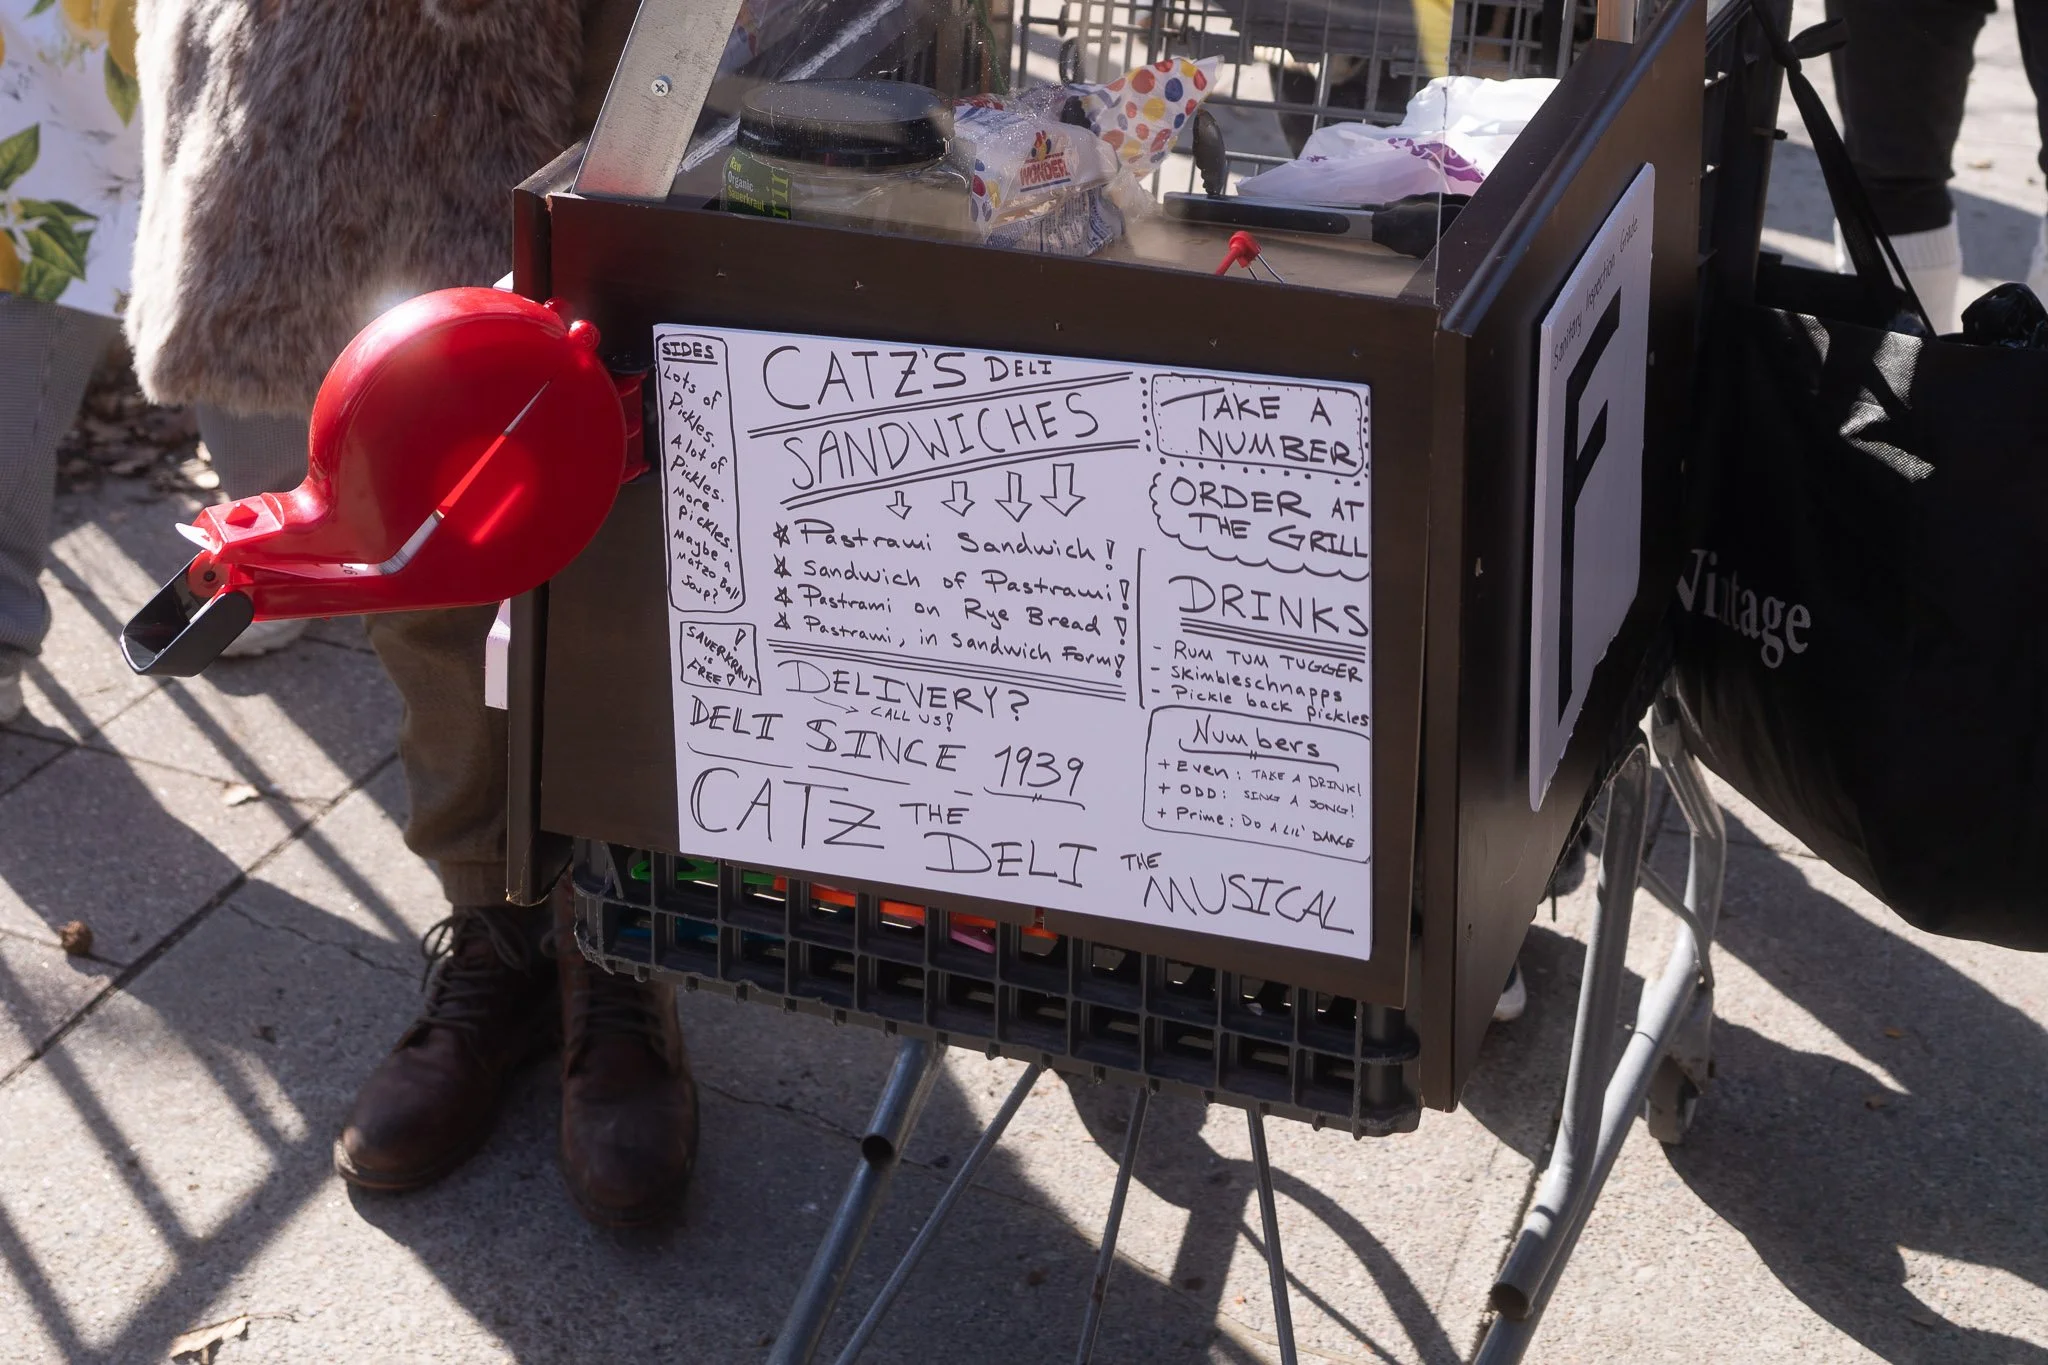 Raw
Organic
Sauerkraut
WONDER
SIDES
Lots of
Pickles.
A lot of
Pickles.
More
Pickles.
Maybe a
Matzo Ball
Soup?
SAUERKRAUT
is
FREE!
CATZ'S DELI
SANDWICHES
Pastrami Sandwich!
Sandwich of Pastrami!
Pastrami on Rye Bread!
Pastrami, in Sandwich Form!
DELIVERY?
CALL US!
DELI SINCE 1939
CATZ THE DELI THE MUSICAL
TAKE A
NUMBER
ORDER AT
THE GRILL
DRINKS
- RUM TUM TUGGER
- Skimbleschnapps
- Pickle back pickles
Numbers
+ Even: TAKE A DRINK!
+ ODD: SING A SONG!
+ Prime: DO A LIL' DANCE
Sanitary Inspection Grade
F
Vintage